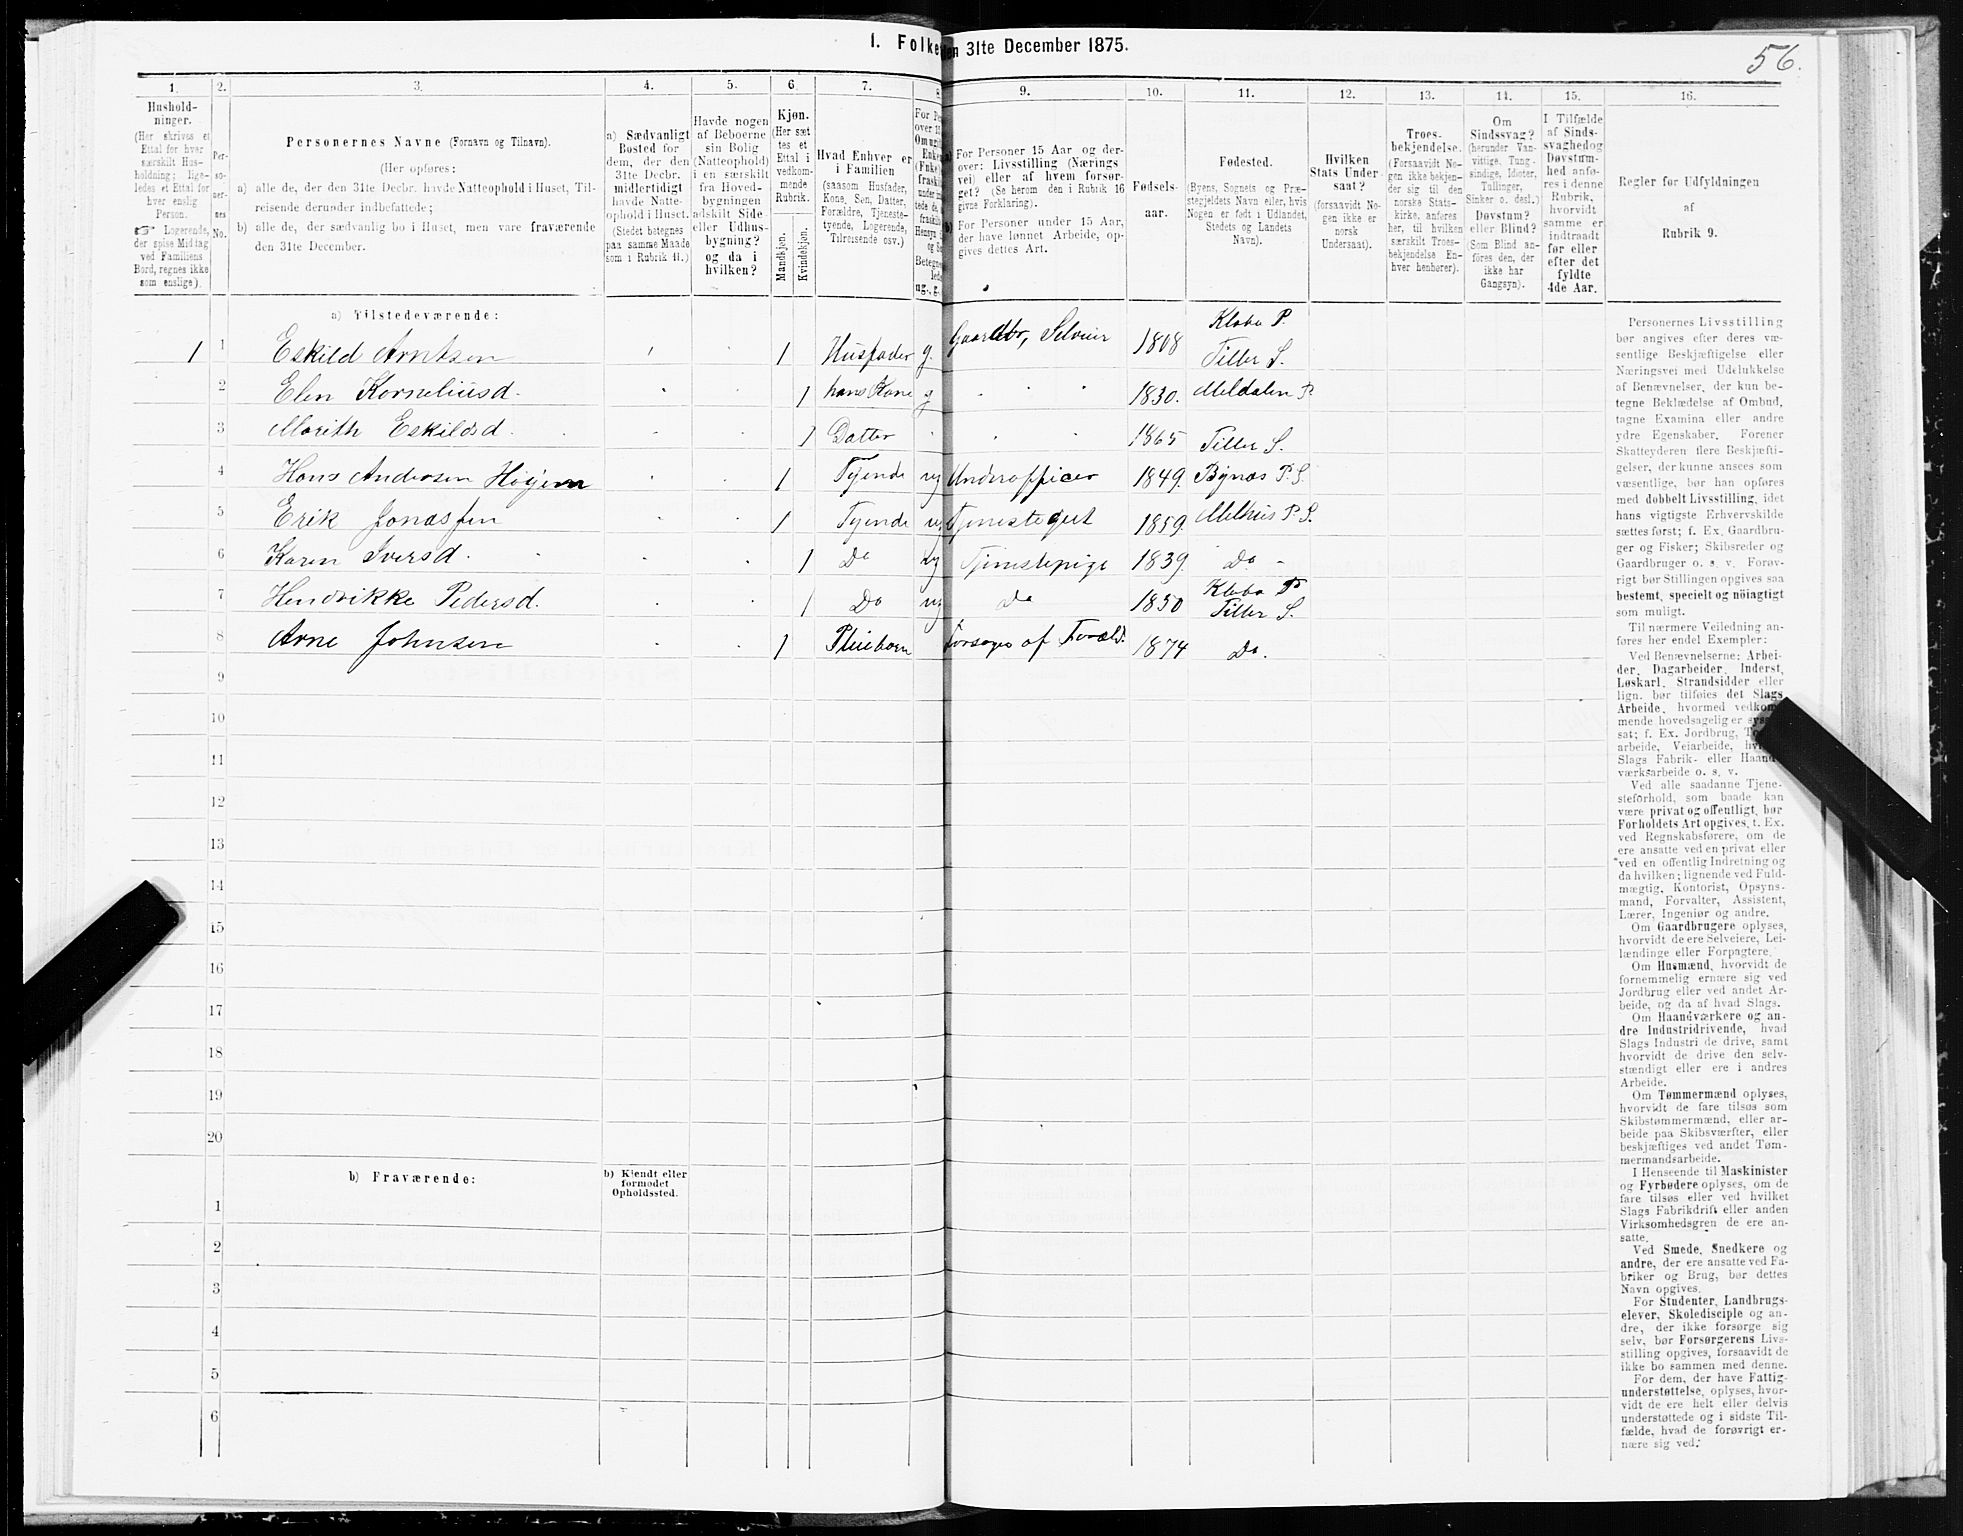 1. Folke
den 31te December 1875.
56.
1.
2.
3.
4.
5.
6
7.
8
9.
10.
11.
12.
13.
14.
15.
16.
Hushold-
ninger.
(Her skrives et
Ettal for hver
særskilt Hus-
holdning; lige-
ledes et Ettal for
hver enslig
Person.
☞ Logerende,
der spise Middag
ved Familiens
Bord, regnes ikke
som enslige).
Per-
so-
ner-
nes
No.
Personernes Navne (Fornavn og Tilnavn).
(Her opføres:
a) alle de, der den 31te Decbr. havde Natteophold i Huset, Til-
reisende derunder indbefattede;
b) alle de, der sædvanlig bo i Huset, men vare fraværende
den 31te December.
a) Sædvanligt
Bosted for
dem, der den
31te Decbr.
midlertidigt
havde Natte-
ophold i Huset.
(Stedet betegnes
paa samme Maade
som i Rubrik 11.)
Havde nogen
af Beboerne
sin Bolig
(Natteophold)
i en særskilt
fra Hoved-
bygningen
adskilt Side-
eller Udhus-
bygning?
og da i
hvilken?
Kjøn.
(Her sæt-
tes et
Ettal i
vedkom-
mende
Rubrik.
Mandkjøn.
Kvindekjøn.
Hvad Enhver er
i Familien
(saasom Husfader,
Kone, Søn, Datter,
Forældre, Tjeneste-
tyende, Logerende,
Tilreisende osv.)
For Personer 15 Aar og der-
over: Livsstilling (Nærings-
vei) eller af hvem forsør-
get? (Se herom den i Rubrik 16
givne Forklaring).
For Personer under 15 Aar,
der have lønnet Arbeide, op-
gives dettes Art.
Fødsels-
aar.
Fødested.
(Byens, Sognets og Præ-
stegjeldets Navn eller, hvis
Nogen er født i Udlandet,
Stedets og Landets
Navn).
Hvilken
Stats Under-
saat?
(forsaavidt No-
gen ikke er
norsk
Undersaat).
Troes-
bekjendelse.
(Forsaavidt No-
gen ikke bekjen-
der sig til den
norske Stats-
kirke, anføres
her, til hvilken
særskilt Troes-
bekjendelse En-
hver henhører).
Om
Sindssvag?
(herunder Van-
vittige, Tung-
sindige, Idioter,
Tullinger,
Sinker o. desl.)
Døvstum?
eller Blind?
(Som Blind an-
føres den, der
ikke har
Gangsyn).
I Tilfælde
af Sinds-
svaghed og
Døvstum-
hed anfø-
res i denne
Rubrik,
hvorvidt
samme er
indtraadt
før eller
efter det
fyldte
4de Aar.
Regler før Udfyldningen
af
Rubrik 9.
a) Tilstedeværende:
1 1 Eskild Arntsen 1 Husfader g. Gaardbr, Selveier 1808 Klæbo P. Tiller S.
2 Elen Korneliusd. 1 hans Kone g 1830. Meldalen P
3 Marith Eskildsd. 1 Datter 1865 Tiller S.
4 Hans Andersen Høijem 1 Tyende ug Underofficer 1849. Bynæs P. S.
5 Erik Jonassen 1 Tyende ug Tjenestegut 1859. Melhus P. S.
6 Karen Iversd. 1 Do ug Tjenestepige 1839. Do
7 Hendrikke Pedersd. 1 Do ug Do 1850 Klæbo P Tiller S.
8 Arne Johnsen 1 Pleiebarn forsørges af Foræld. 1874 Do.
9
10
11
12
13
14
15
16
17
18
19
20
b) Fraværende:
b) Kjendt eller
formodet
Opholdssted.
1
2
3
4
5
6
Personernes Livsstilling
bør angives efter deres væ-
sentlige Beskjæftigelse eller
Næringsvei med Udelukkelse
af Benævnelser, der kun be-
tegne Beklædelse af Ombud,
tagne Examina eller andre
ydre Egenskaber. Forener
Skatteyderen flere Beskjæfti-
gelser, der kunne ansees som
væsentlige, bør han opføres
med dobbelt Livsstilling, idet
hans vigtigste Erhvervskilde
sættes først; f. Ex. Gaardbru-
ger og Fisker; Skibsreder og
Gaardbruger o. s. v. Forøv-
rigt bør Stillingen opgives saa
bestemt, specielt og nöiagtigt
som muligt.
Til nærmere Veiledning an-
føres her endel Exempler:
Ved Benævnelserne: Arbei-
der, Dagarbeider, Inderst,
Løskarl, Strandsidder eller
lign. bør tilføies det Slags
Arbeide, hvormed vedkom-
mende hovedsagelig er syssel-
sat; f. Ex. Jordbrug,
arbeide, Veiarbeide,
Slags Fabrik- eller Haand-
værksarbeide o. s. v.
Ved alle saadanne Tjene-
steforhold, som baade kan
være privat og offentligt, bør
Forholdets Art opgives, t. Ex.
ved Regnskabsførere, om de
ere ansatte ved en privat eller
ved en offentlig Indretning og
da hvilken; lignende ved Fuld-
mægtig, Kontorist, Opsyns-
mand, Forvalter, Assistent,
Lærer, Ingeniør og andre.
Om Gaardbrugere oplyses,
hvorvidt de ere Selveiere, Lei-
lændinge eller Forpagtere.
Om Husmænd, hvorvidt de
fornemmelig ernære sig ved
Jordbrug eller ved andet Ar-
beide, og da af hvad Slags.
Om Haandværkere og an-
dre Industridrivende, hvad
Slags Industri de drive, samt
hvorvidt de drive den selv-
stændigt eller ere i andres
Arbeide.
Om Tømmermænd oplyses,
hvorvidt de fare tilsøs som
Skibstømmermænd, eller ar-
beide paa Skibsværfter, eller
beskjæftiges ved andet Tøm-
mermandsarbeide.
I Henseende til Maskinister
og Fyrbødere oplyses, om de
fare tilsøs eller ved hvilket
Slags Fabrikdrift eller anden
Virksomhedsgren de ere an-
satte.
Ved Smede, Snedkere og
andre, der ere ansatte ved Fa-
briker og Brug, bør dettes
Navn opgives.
For Studenter, Landbrugs-
elever, Skoledisciple og an-
dre, der ikke forsørge sig
selv, bør Forsørgerens Livs-
stilling opgives, forsaavidt de
ikke bo sammen med denne.
For dem, der have Fattig-
understøttelse, oplyses, hvor-
vidt de ere helt eller delvis
understøttede og i sidste Til-
fælde, hvad de forøvrigt er-
nære sig ved.